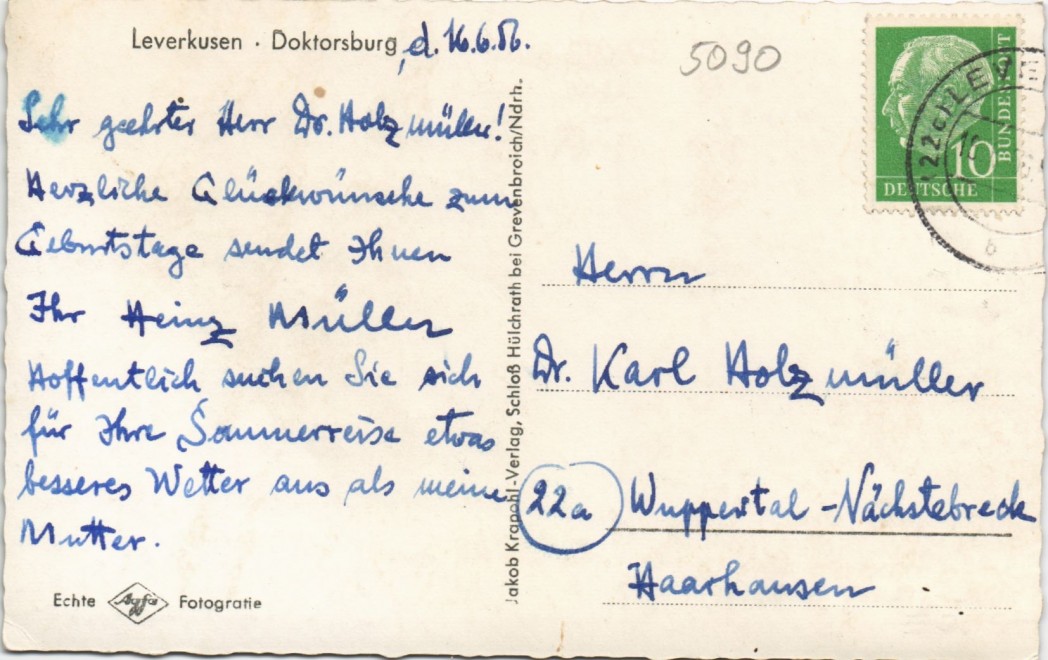 Leverkusen · Doktorsburg, d. 16.6.56.
Sehr geehrter Herr Dr. Holzmüller!
Herzliche Glückwünsche zum
Geburtstage sendet Ihnen
Ihr Heinz Müller
Hoffentlich suchen Sie sich
für Ihre Sommerreise etwas
besseres Wetter aus als meine
Mutter.
Echte Agfa Fotografie
Jakob Krapohl-Verlag, Schloß Hülchrath bei Grevenbroich/Ndrh.
5090
10
DEUTSCHE
BUNDESPOST
22c LEVE
b
Herrn
Dr. Karl Holzmüller
22a Wuppertal-Nächstebreck
Haarhausen